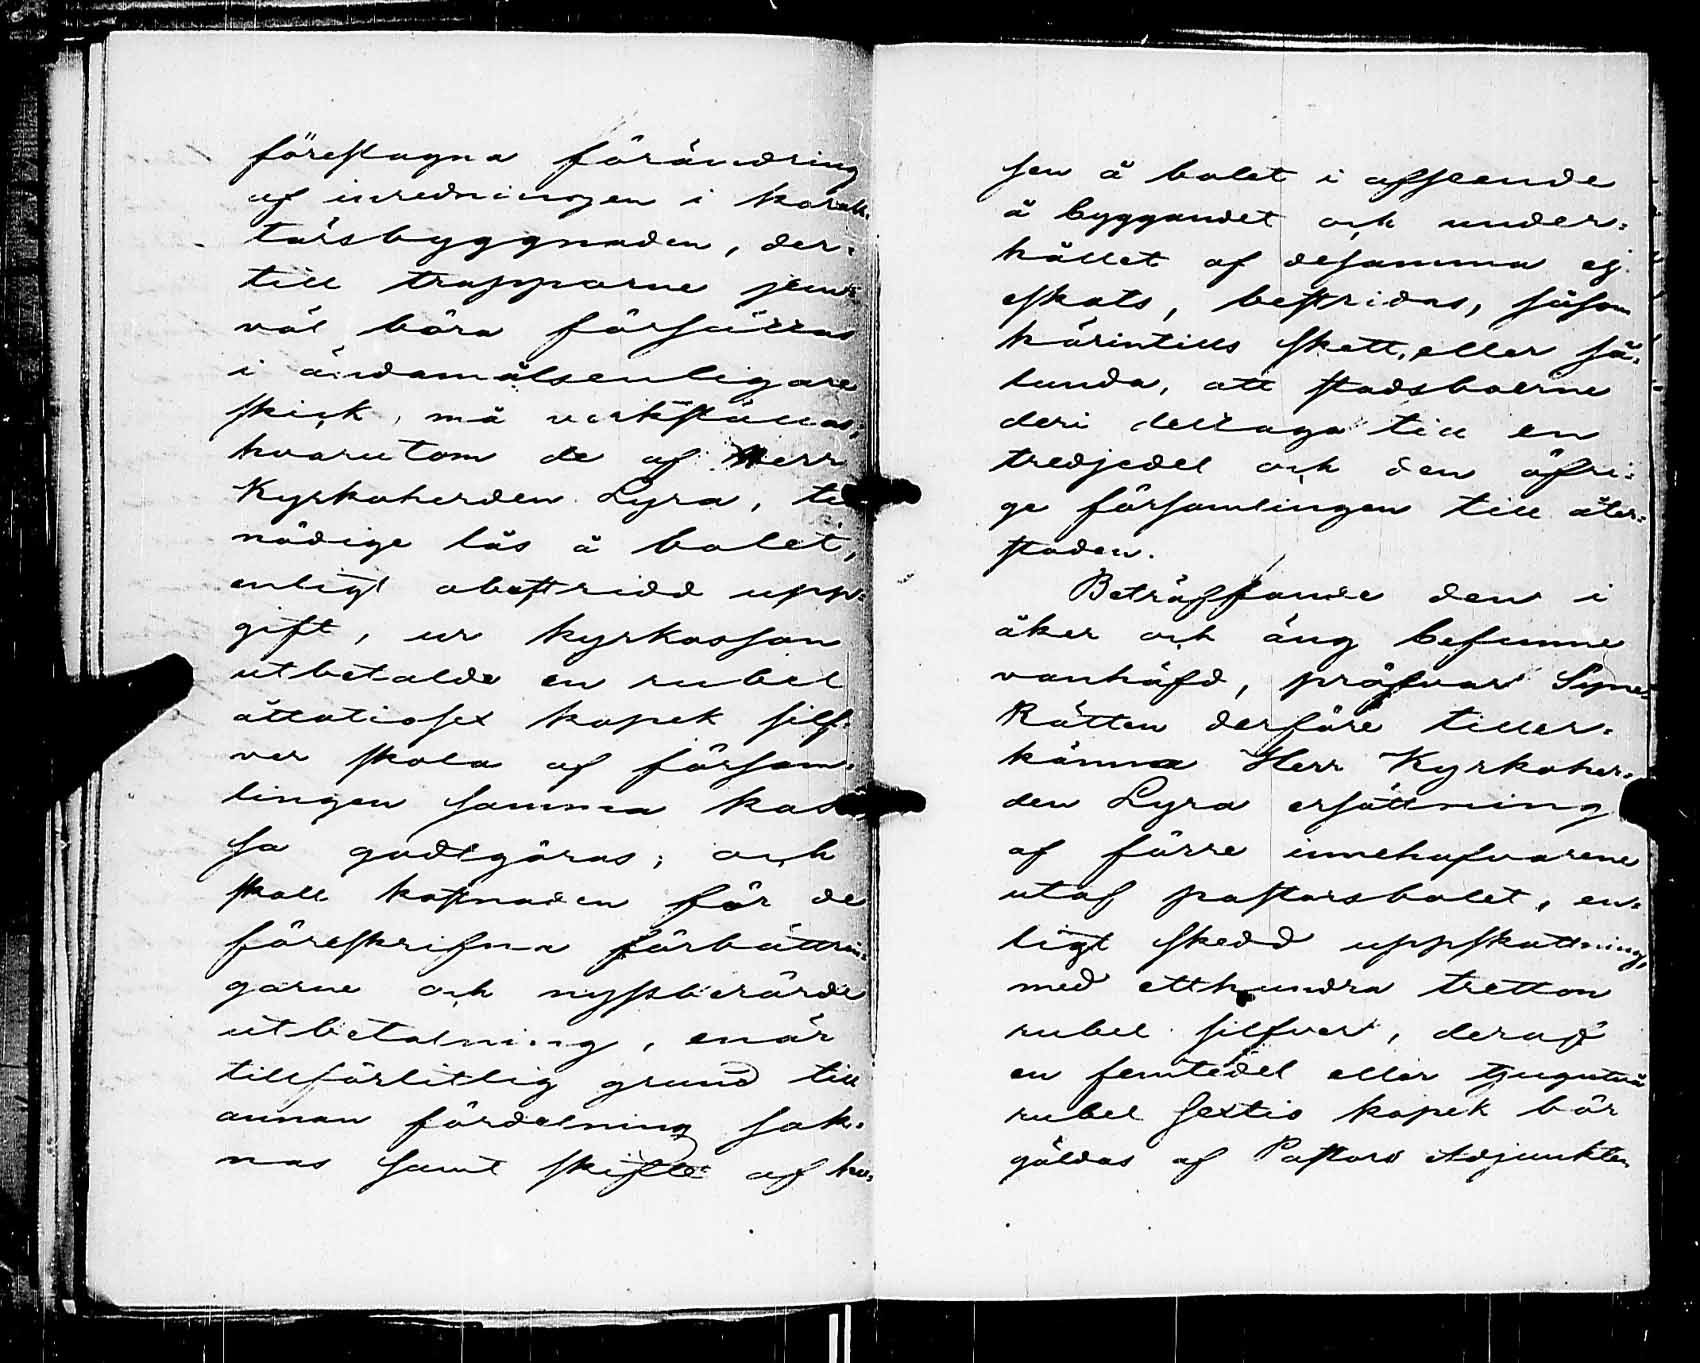 föreslagna förändring
af inredningen i karak-
tärsbyggnaden, der-
till trapporne jem-
väl böra försättas
i ändamålsenligare
skick, må verkställas;
hvarutom de af Herr
Kyrkoherden Lyra, till
nödige lås å bolet,
enligt obestridd upp-
gift, ur kyrkossan
utbetalde en rubel
åttatiosex kopek silf-
ver skola af försam-
lingen samma kas-
sa godtgöras; och
skall kostnaden för de
föreskrifna förbättrin-
garne och nyssberörde
utbetalning, enär
tillförlitlig grund till
annan fördelning sak-
nas samt skifte af hu-
sen å bolet i afseende
å byggandet och under-
hållet af desamma ej
eskats, bestridas, såsom
härintills skett, eller så-
lunda, att stadsboerne
deri deltaga till en
tredjedel och den öfri-
ge församlingen till åter-
stoden.
Beträffande den i
åker och äng befunne
vanhäfd, pröfvar Syne-
Rätten derföre tiller-
känna Herr Kyrkoher-
den Lyra ersättning
af förre innehafvarene
utaf pastorsbolet, en-
ligt skedd uppskattning,
med etthundra tretton
rubel silfver, deraf
en femtedel eller tjugutvå
rubel sextio kopek bör
gäldas af Pastors Adjunkten